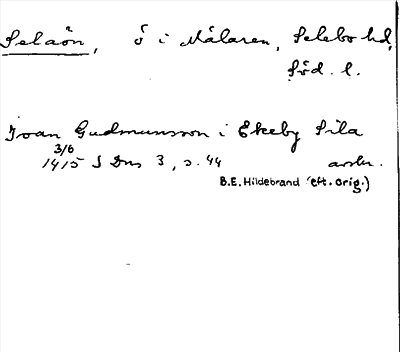 Selaön, ö i Mälaren, Selebo hd,
Söd. l.
Ivan Gudmunsson i Ekeby Sila
3/6
1415 S Dns 3, s. 44
B.E. Hildebrand (eft. orig.)